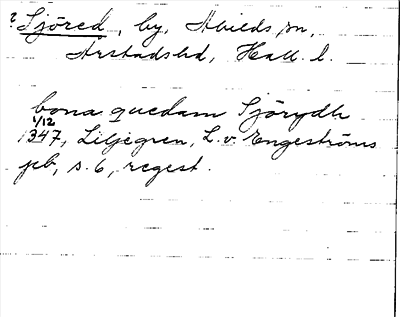 ? Sjöred, by, Abilds sn,
Årstads hd, Hall. l.
bona quedam Sjörydh
1/12
1347, Liljegren, L. v. Engeströms
pb, s. 6, regest.